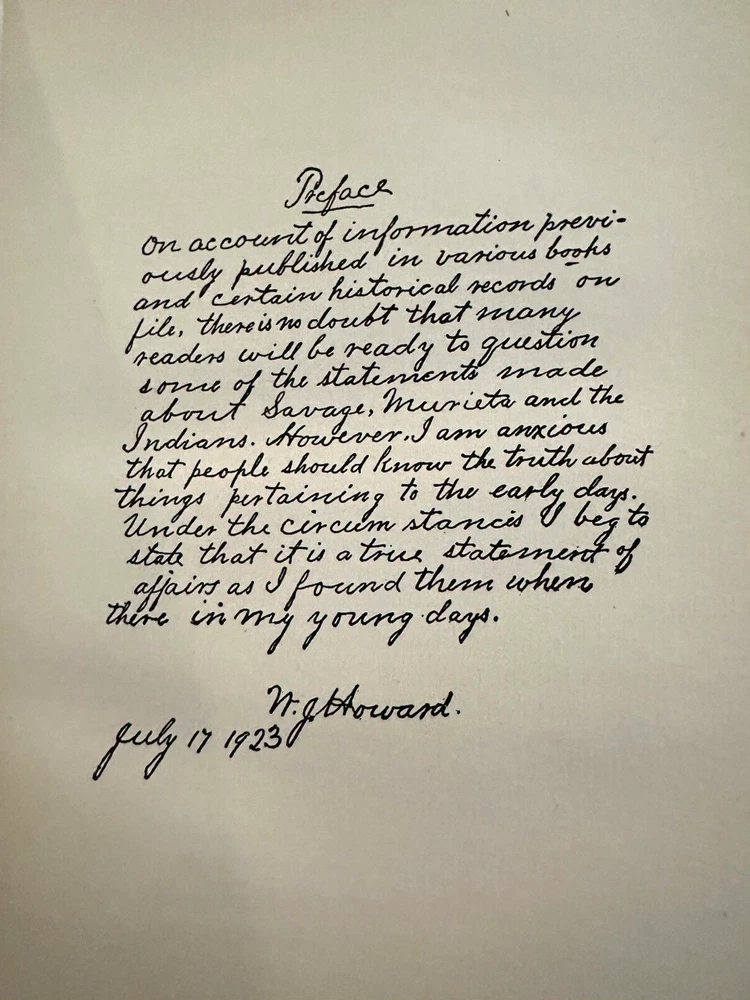 Preface
On account of information previ-
ously published in various books
and certain historical records on
file, there is no doubt that many
readers will be ready to question
some of the statements made
about Savage, Murieta and the
Indians. However, I am anxious
that people should know the truth about
things pertaining to the early days.
Under the circumstances I beg to
state that it is a true statement of
affairs as I found them when
there in my young days.
W. J. Howard.
July 17 1923